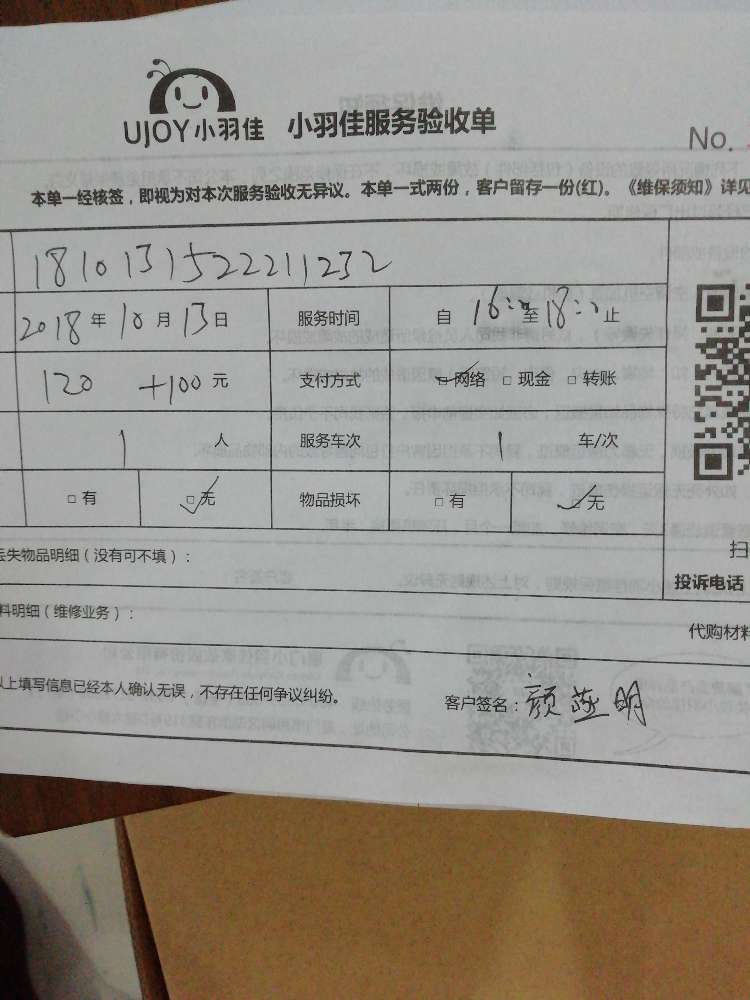 UJOY小羽佳 小羽佳服务验收单
No.
本单一经核签，即视为对本次服务验收无异议。本单一式两份，客户留存一份(红)。《维保须知》详见
1810131522211232
2018年10月13日 服务时间 自16:00至18:00止
120 +100元 支付方式 ☑网络 □现金 □转账
1人 服务车次 1车/次
□有 ☑无 物品损坏 □有 ☑无
丢失物品明细（没有可不填）：
扫
投诉电话
料明细（维修业务）：
代购材料
以上填写信息已经本人确认无误，不存在任何争议纠纷。 客户签名：颜燕明